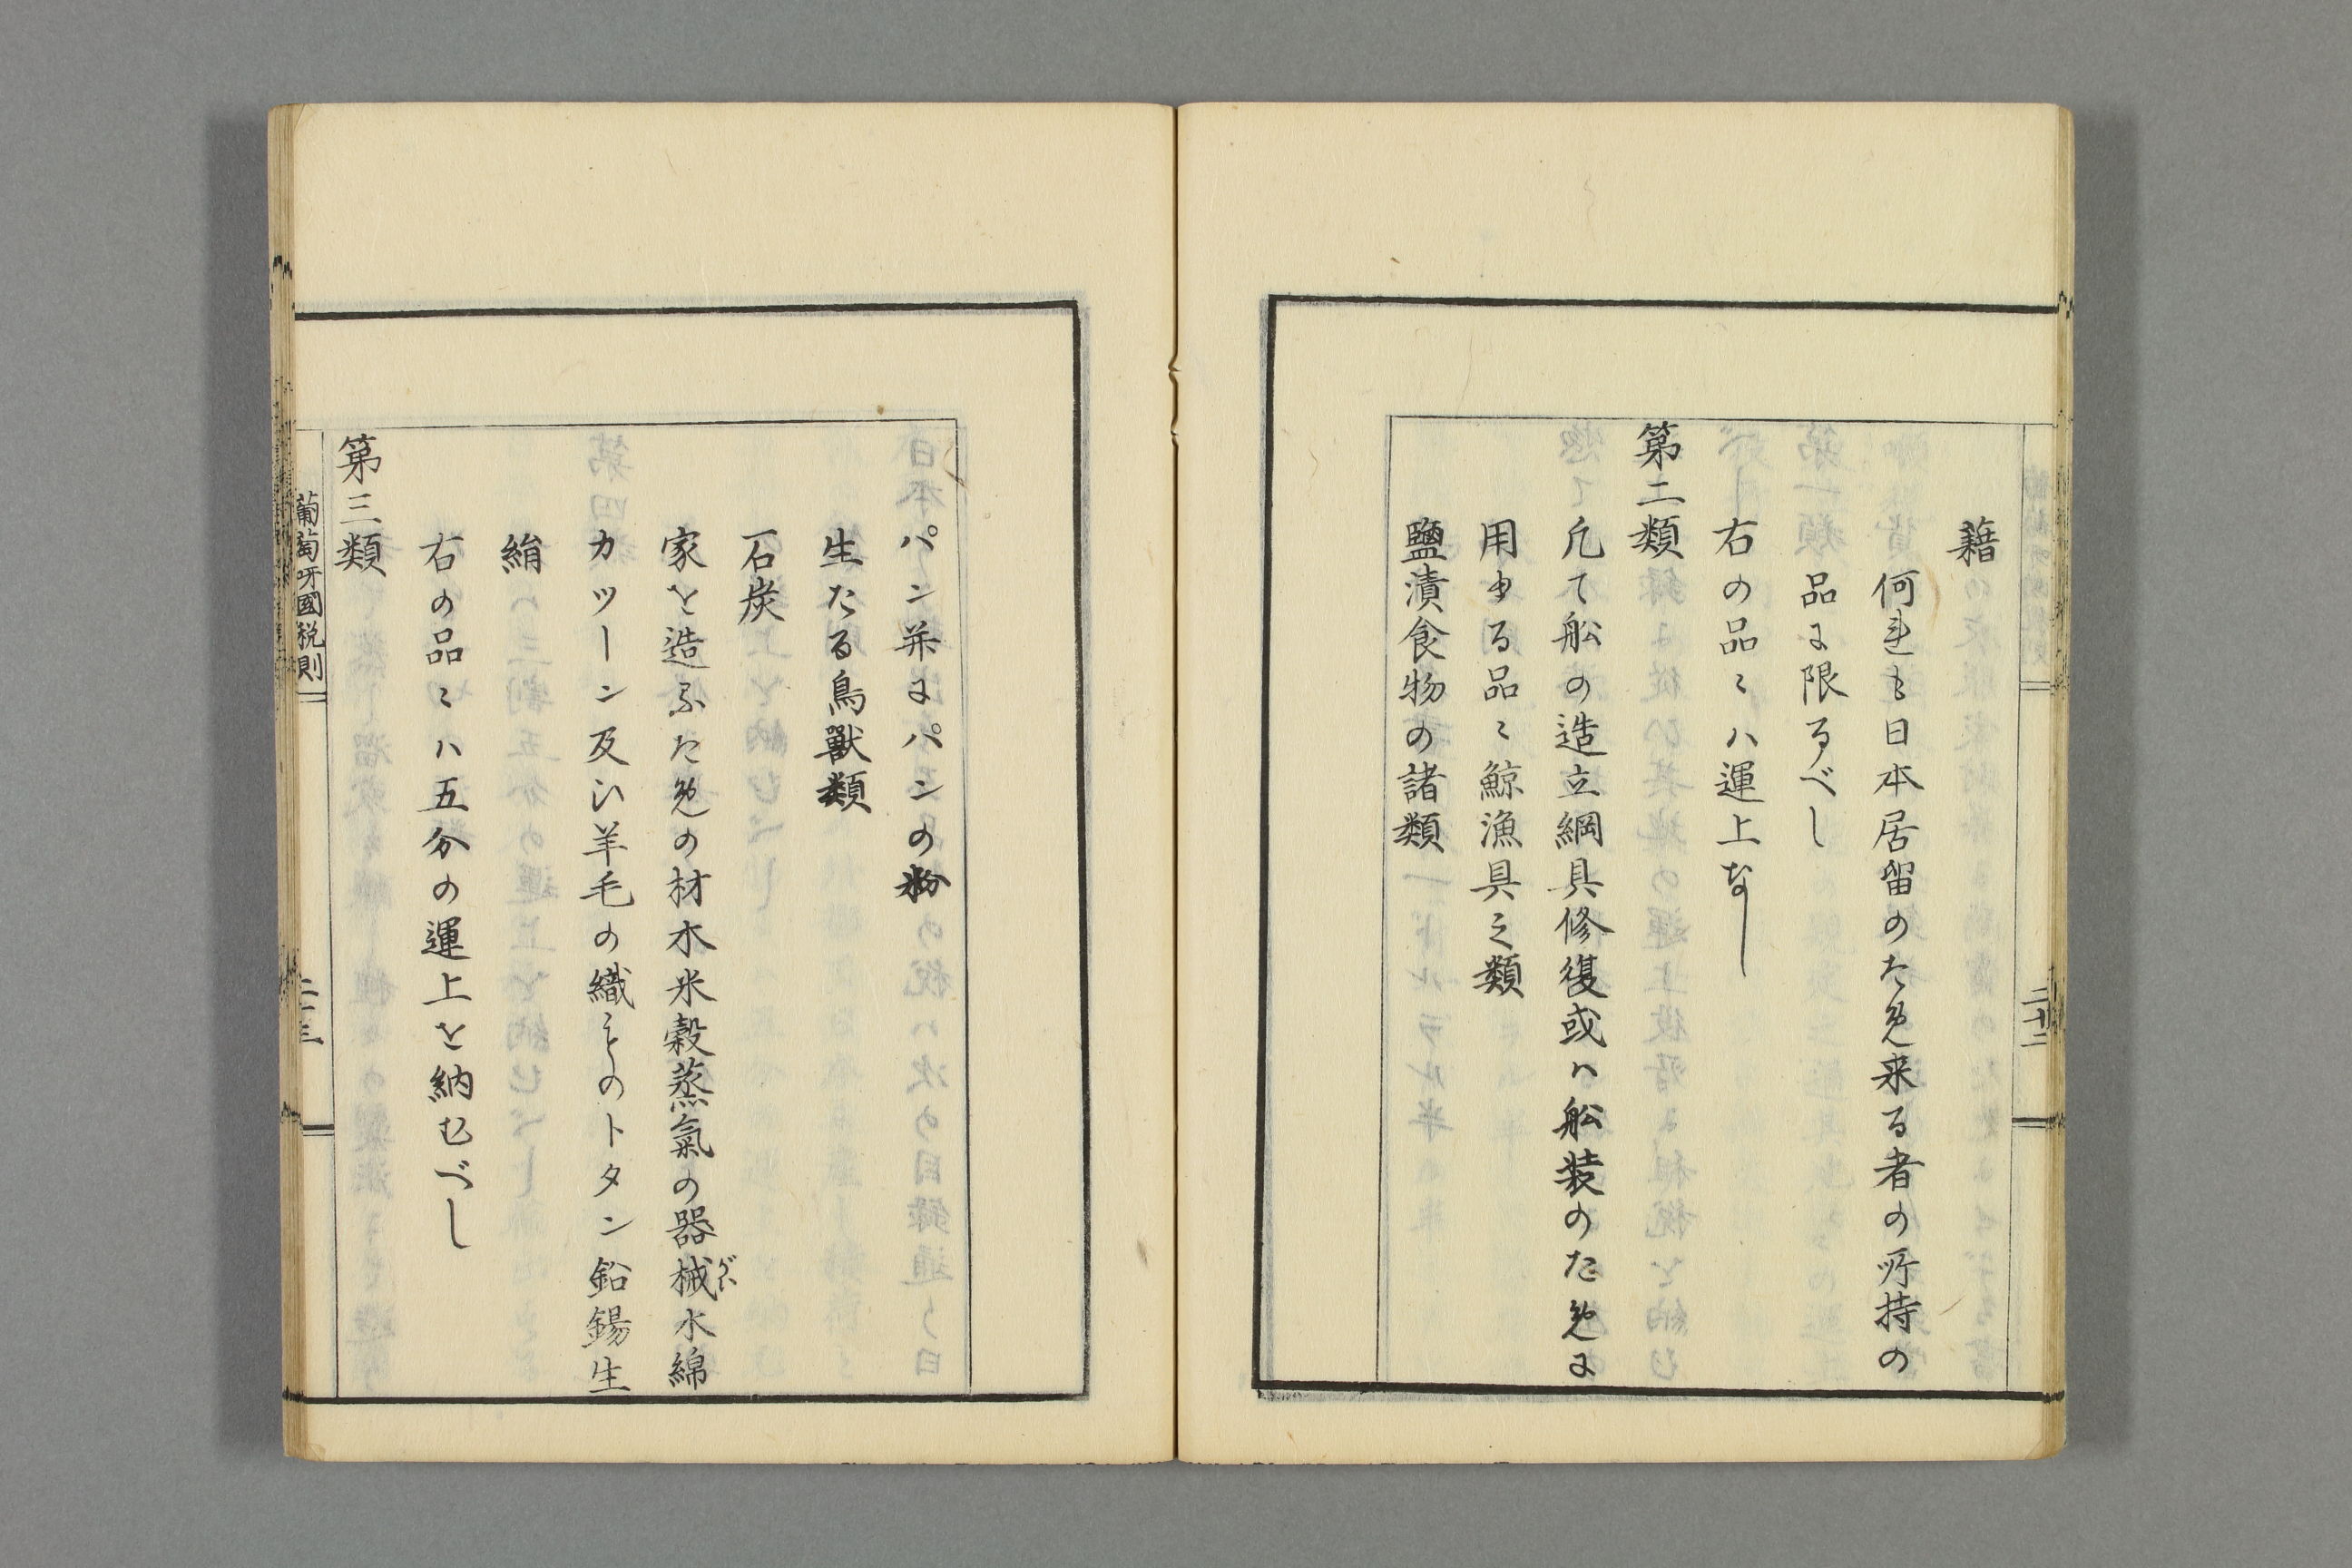 藉
何れも日本居留のため来る者の所持の
品に限るべし
右の品々ハ運上なし
第二類
凡て船の造立綱具修復或ハ船装のために
用ゆる品々鯨漁具之類
鹽漬食物の諸類
二十二
パン并にパンの粉
生たる鳥獸類
石炭
家を造るための材木米穀蒸氣の器械水綿
がい
カツーン及ひ羊毛の織ものトタン鉛錫生
絹
右の品々ハ五分の運上を納むべし
第三類
葡萄呀國税則
二十三